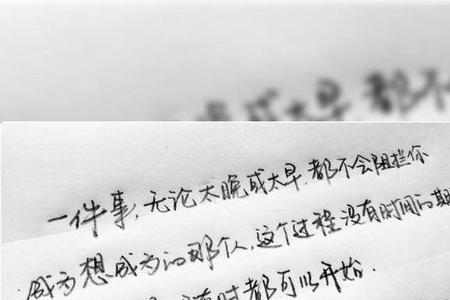 或太早 都不
一件事，无论太晚或太早，都不会阻拦你
成为想成为的那个人，这个过程没有时间的期
时都可以开始．